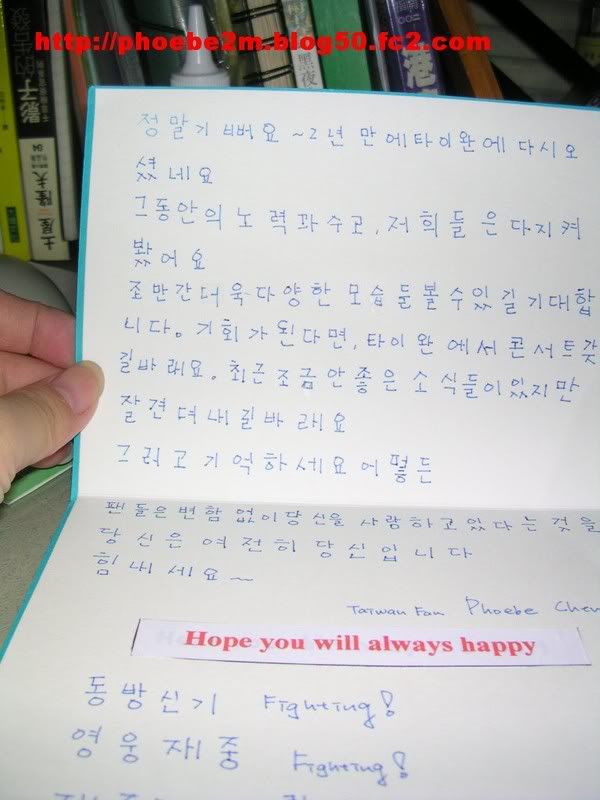 http://phoebe2m.blog50.fc2.com
影子的告發
土屋隆夫
04
黑夜
港
정말기뻐요~2년만에타이완에다시오
셨네요
그동안의노력과수고,저희들은다지켜
봤어요
조만간더욱다양한모습들볼수있길기대합
니다。기회가된다면,타이완에서콘서트갖
길바래요。최근조금안좋은소식들이있지만
잘견뎌내길바래요
그리고기억하세요어떻든
팬들은변함없이당신을사랑하고있다는것을
당신은여전히당신입니다
힘내세요~
Taiwan Fan Phoebe Chen
Hope you will always happy
동방신기 Fighting!
영웅재중 Fighting!